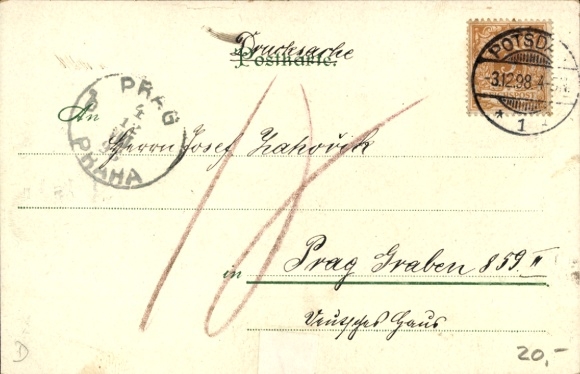 Drucksache
Postkarte.
POTSDAM
3.12.98. 4-5N.
* 1
REICHSPOST
PRAG
PRAHA
An
Herrn Josef Zahořik
18
in Prag Graben 859 II
Deutsches Haus
20,-
D